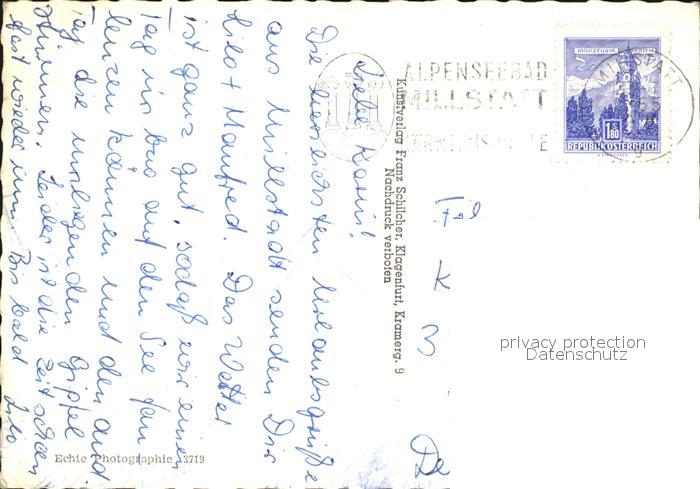 Liebe Karin!
Die herzlichsten Urlaubsgrüße
aus Millstadt senden Dir
Lilo + Manfred. Das Wetter
ist ganz gut, sodaß wir einen
Tag im Boot auf den See
können und den and.
Tag die umliegenden Gipfel
stürmen. Leider ist die Zeit schon
fast wieder um. Bis bald Lilo
Kunstverlag Franz Schilcher, Klagenfurt, Kramerg. 9
Nachdruck verboten
Echte Photographie 3719
ALPENSEEBAD
MILLSTATT
MILLSTATT
MÜNZTURM
1.80
REPUBLIK ÖSTERREICH
privacy protection
Datenschutz